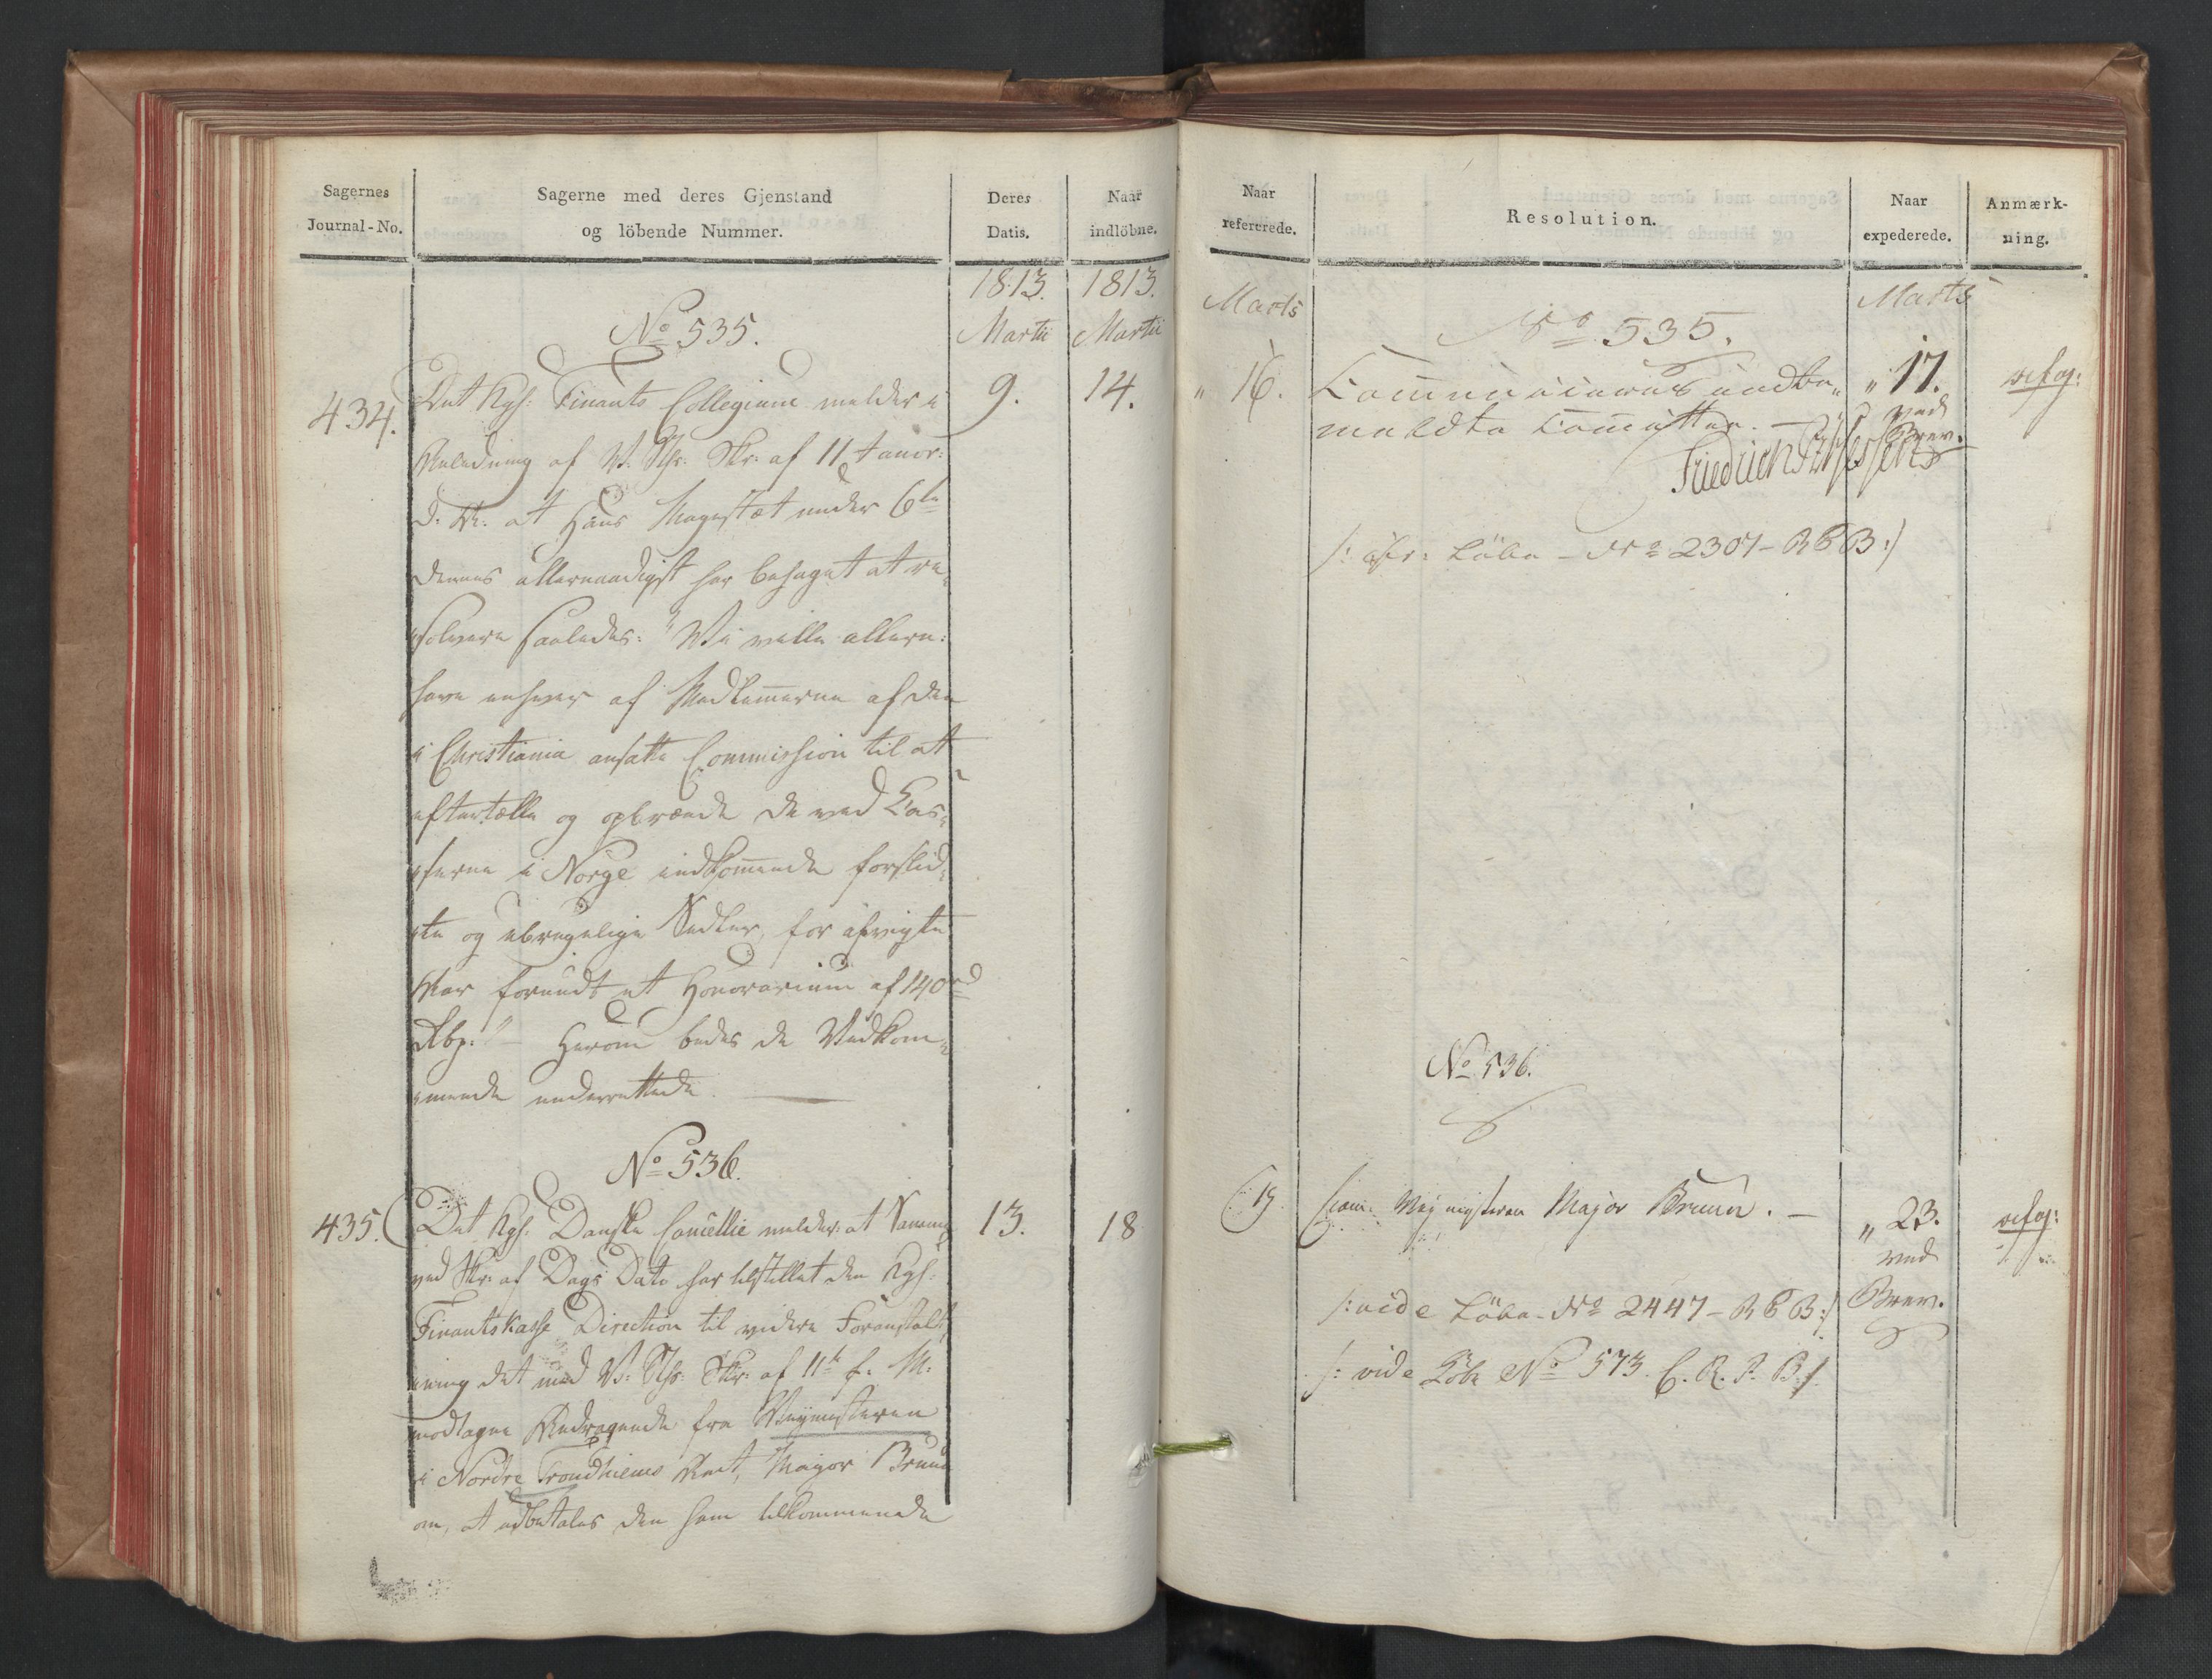 Sagernes
Journal-No.
Sagerne med deres Gjenstand
og löbende Nummer.
Deres
Datis.
Naar
indlöbne.
1813.
1813.
Martii
Martii
No 535.
434.
Det Kgl: Finants Collegium melder i
9.
14.
Anledning af V. Skr: af 11 Januar:
d. A: at Hans Magestæt under 6te
dennes allernaadigst har behaget at re„
„solvere saaledes: "Vi ville allern:
have enhver af Medlem̅erne af den
i Christiania ansatte Commission til at
eftertælle og opbrænde de ved Cas„
„serne i Norge indkom̅ende forslid„
„te og ubrugelige Sedler, for afvigte
Aar forundt et Honorarium af 140 rd
Rbp:" – Herom bedes de Vedkom„
„mende underrettede. —
No 536.
435.
Det Kgl: Danske Cancellie melder: at Samme
13.
18
ved Skr: af Dags Dato har tilstillet den Kgl:
Finantskasse Direction til videre Foranstalt„
„ning det med V: Skr: af 11te f: M:
modtagne Andragende fra Veymesteren
i Nordre Trondhiems Amt, Major Bruun
om, at udbetales den ham tilkommende
Naar
refererede.
Resolution.
Naar
expederede.
Anmærk-
ning.
Marts
Marts
No 535.
" 16.
Communiceres andbe„
maldte Committee. —
" 17.
ved
Brev.
Friedrich
/: Löbe – No 2307 – R B B :/
No 536.
19
Com: Veymesteren Major Bruun. —
" 23.
ved
Brev.
/: vide Löbe – No 2447 – R B B :/
/: vide Löbe No 573. C. R. P. B :/